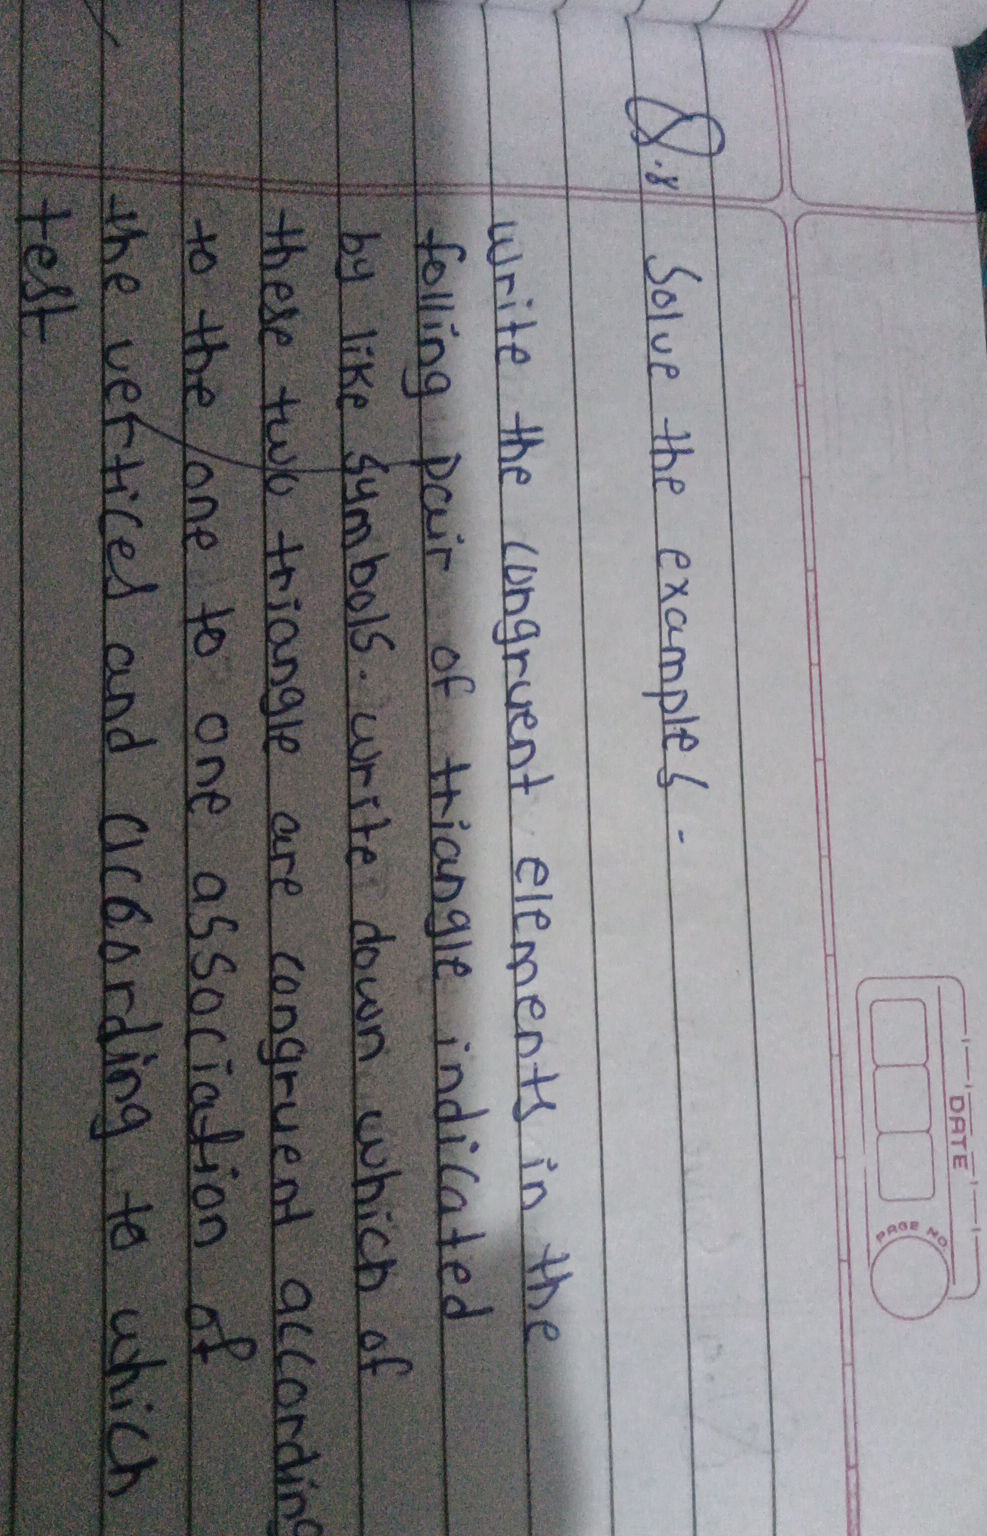 DATE
PAGE NO
Q.8 Solve the examples -
write the congruent elements in the
folling pair of triangle indicated
by like symbols. write down which of
these two triangle are congruent according
to the one to one association of
the vertices and according to which
test